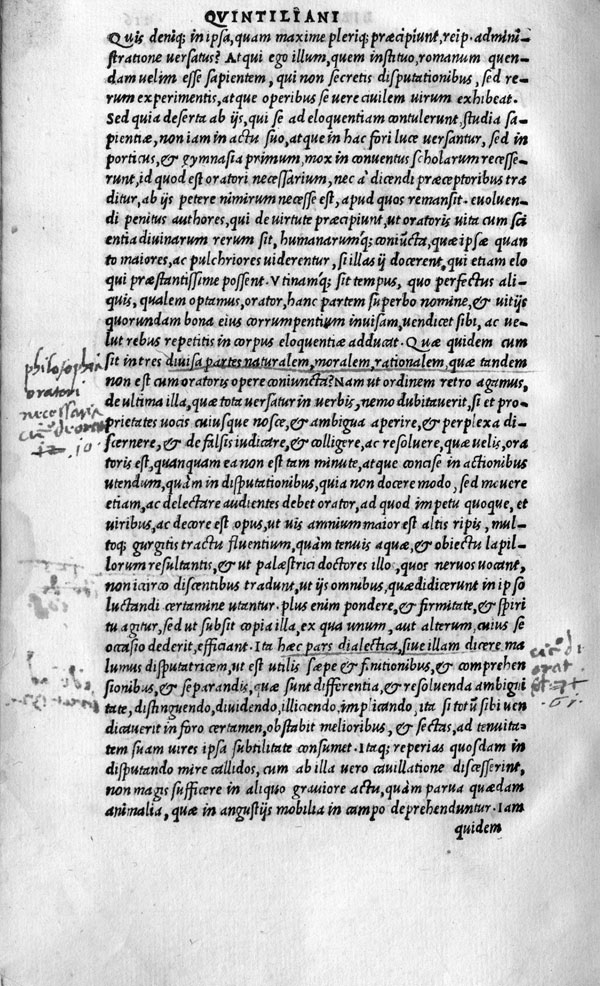 QVINTILIANI
Quis deniq; in ipsa, quam maxime pleriq; præcipiunt, reip. admini-
stratione uersatus? Atqui ego illum, quem instituo, romanum quen-
dam uelim esse sapientem, qui non secretis disputationibus, sed re-
rum experimentis, atque operibus se uere ciuilem uirum exhibeat.
Sed quia deserta ab ijs, qui se ad eloquentiam contulerunt, studia sa-
pientiæ, non iam in actu suo, atque in hac fori luce uersantur, sed in
porticus, & gymnasia primum, mox in conuentus scholarum recesse-
runt, id quod est oratori necessarium, nec à dicendi præceptoribus tra
ditur, ab ijs petere nimirum necesse est, apud quos remansit. euoluen-
di penitus authores, qui de uirtute præcipiunt, ut oratoris uita cum sci
entia diuinarum rerum sit, humanarumq; coniuncta, quæ ipsæ quan
to maiores, ac pulchriores uiderentur, si illas ij docerent, qui etiam elo
qui præstantissime possent. Vtinamq; sit tempus, quo perfectus ali-
quis, qualem optamus, orator, hanc partem superbo nomine, & uitijs
quorundam bona eius corrumpentium inuisam, uendicet sibi, ac ue-
lut rebus repetitis in corpus eloquentiæ adducat. Quæ quidem cum
sit in tres diuisa partes naturalem, moralem, rationalem, quæ tandem
non est cum oratoris opere coniuncta? Nam ut ordinem retro agamus,
de ultima illa, quæ tota uersatur in uerbis, nemo dubitauerit, si et pro-
prietates uocis cuiusque nosce, & ambigua aperire, & perplexa di-
scernere, & de falsis iudicare, & colligere, ac resoluere, quæ uelis, ora
toris est, quanquam ea non est tam minute, atque concise in actionibus
utendum, quàm in disputationibus, quia non docere modo, sed mouere
etiam, ac delectare audientes debet orator, ad quod impetu quoque, et
uiribus, ac decore est opus, ut uis amnium maior est altis ripis, mul-
toq; gurgitis tractu fluentium, quàm tenuis aquæ, & obiectu lapil-
lorum resultantis, & ut palæstrici doctores illo, quos neruos uocant,
non icirco discentibus tradunt, ut ijs omnibus, quæ didicerunt in ipso
luctandi certamine utantur. plus enim pondere, & firmitate, & spiri
tu agitur, sed ut subsit copia illa, ex qua unum, aut alterum, cuius se
occasio dederit, efficiant. Ita hæc pars dialectica, siue illam dicere ma
lumus disputatricem, ut est utilis sæpe & finitionibus, & comprehen
sionibus, & separandis, quæ sunt differentia, & resoluenda ambigui
tate, distinguendo, diuidendo, illiciendo, implicando, ita si totũ sibi uen
dicauerit in foro certamen, obstabit melioribus, & sectas, ad tenuita-
tem suam uires ipsa subtilitate consumet. Itaq; reperias quosdam in
disputando mire callidos, cum ab illa uero cauillatione discesserint,
non magis sufficere in aliquo grauiore actu, quàm parua quædam
animalia, quæ in angustijs mobilia in campo deprehenduntur. Iam
quidem
philosophia
oratori
necessaria